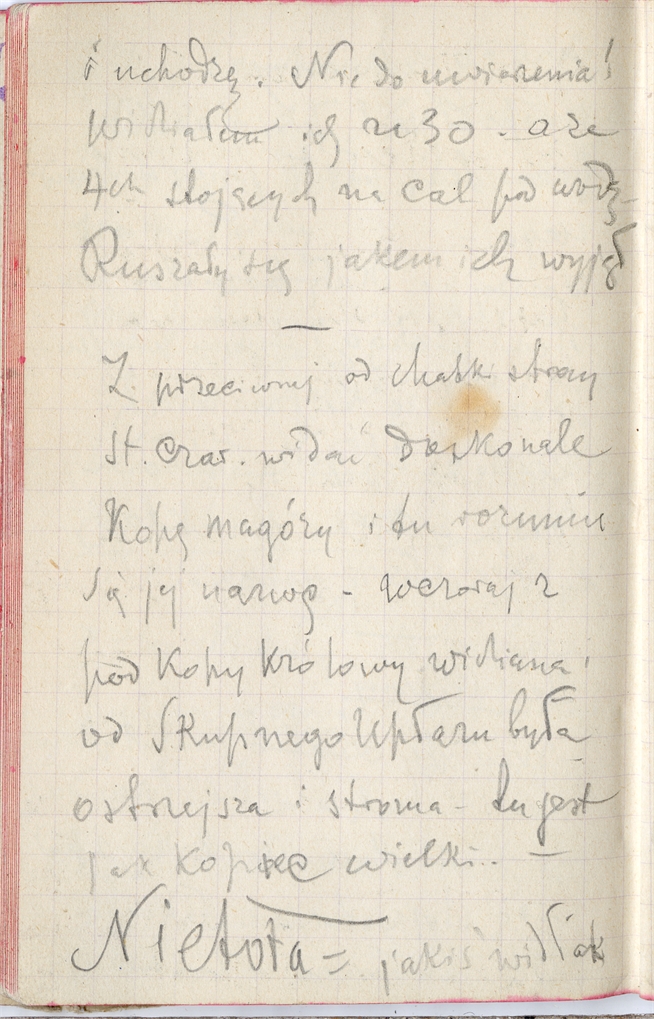 i uchodzę. Nie do uwierzenia!
widziałem ich z 30. a że
4ch stojących na cal pod wodą –
Ruszały się jakem ich wyjął
—
Z przeciwnej od chatki strony
St. Czar. widać doskonale
Kopę magóry i tu rozumie
się jej nazwę – wczoraj z
pod Kopy Królowy widziana i
od Skupnego Upłazu była
ostrzejsza i stroma – tu jest
jak Kopiec wielki.. —
Nietota = jakiś widłak